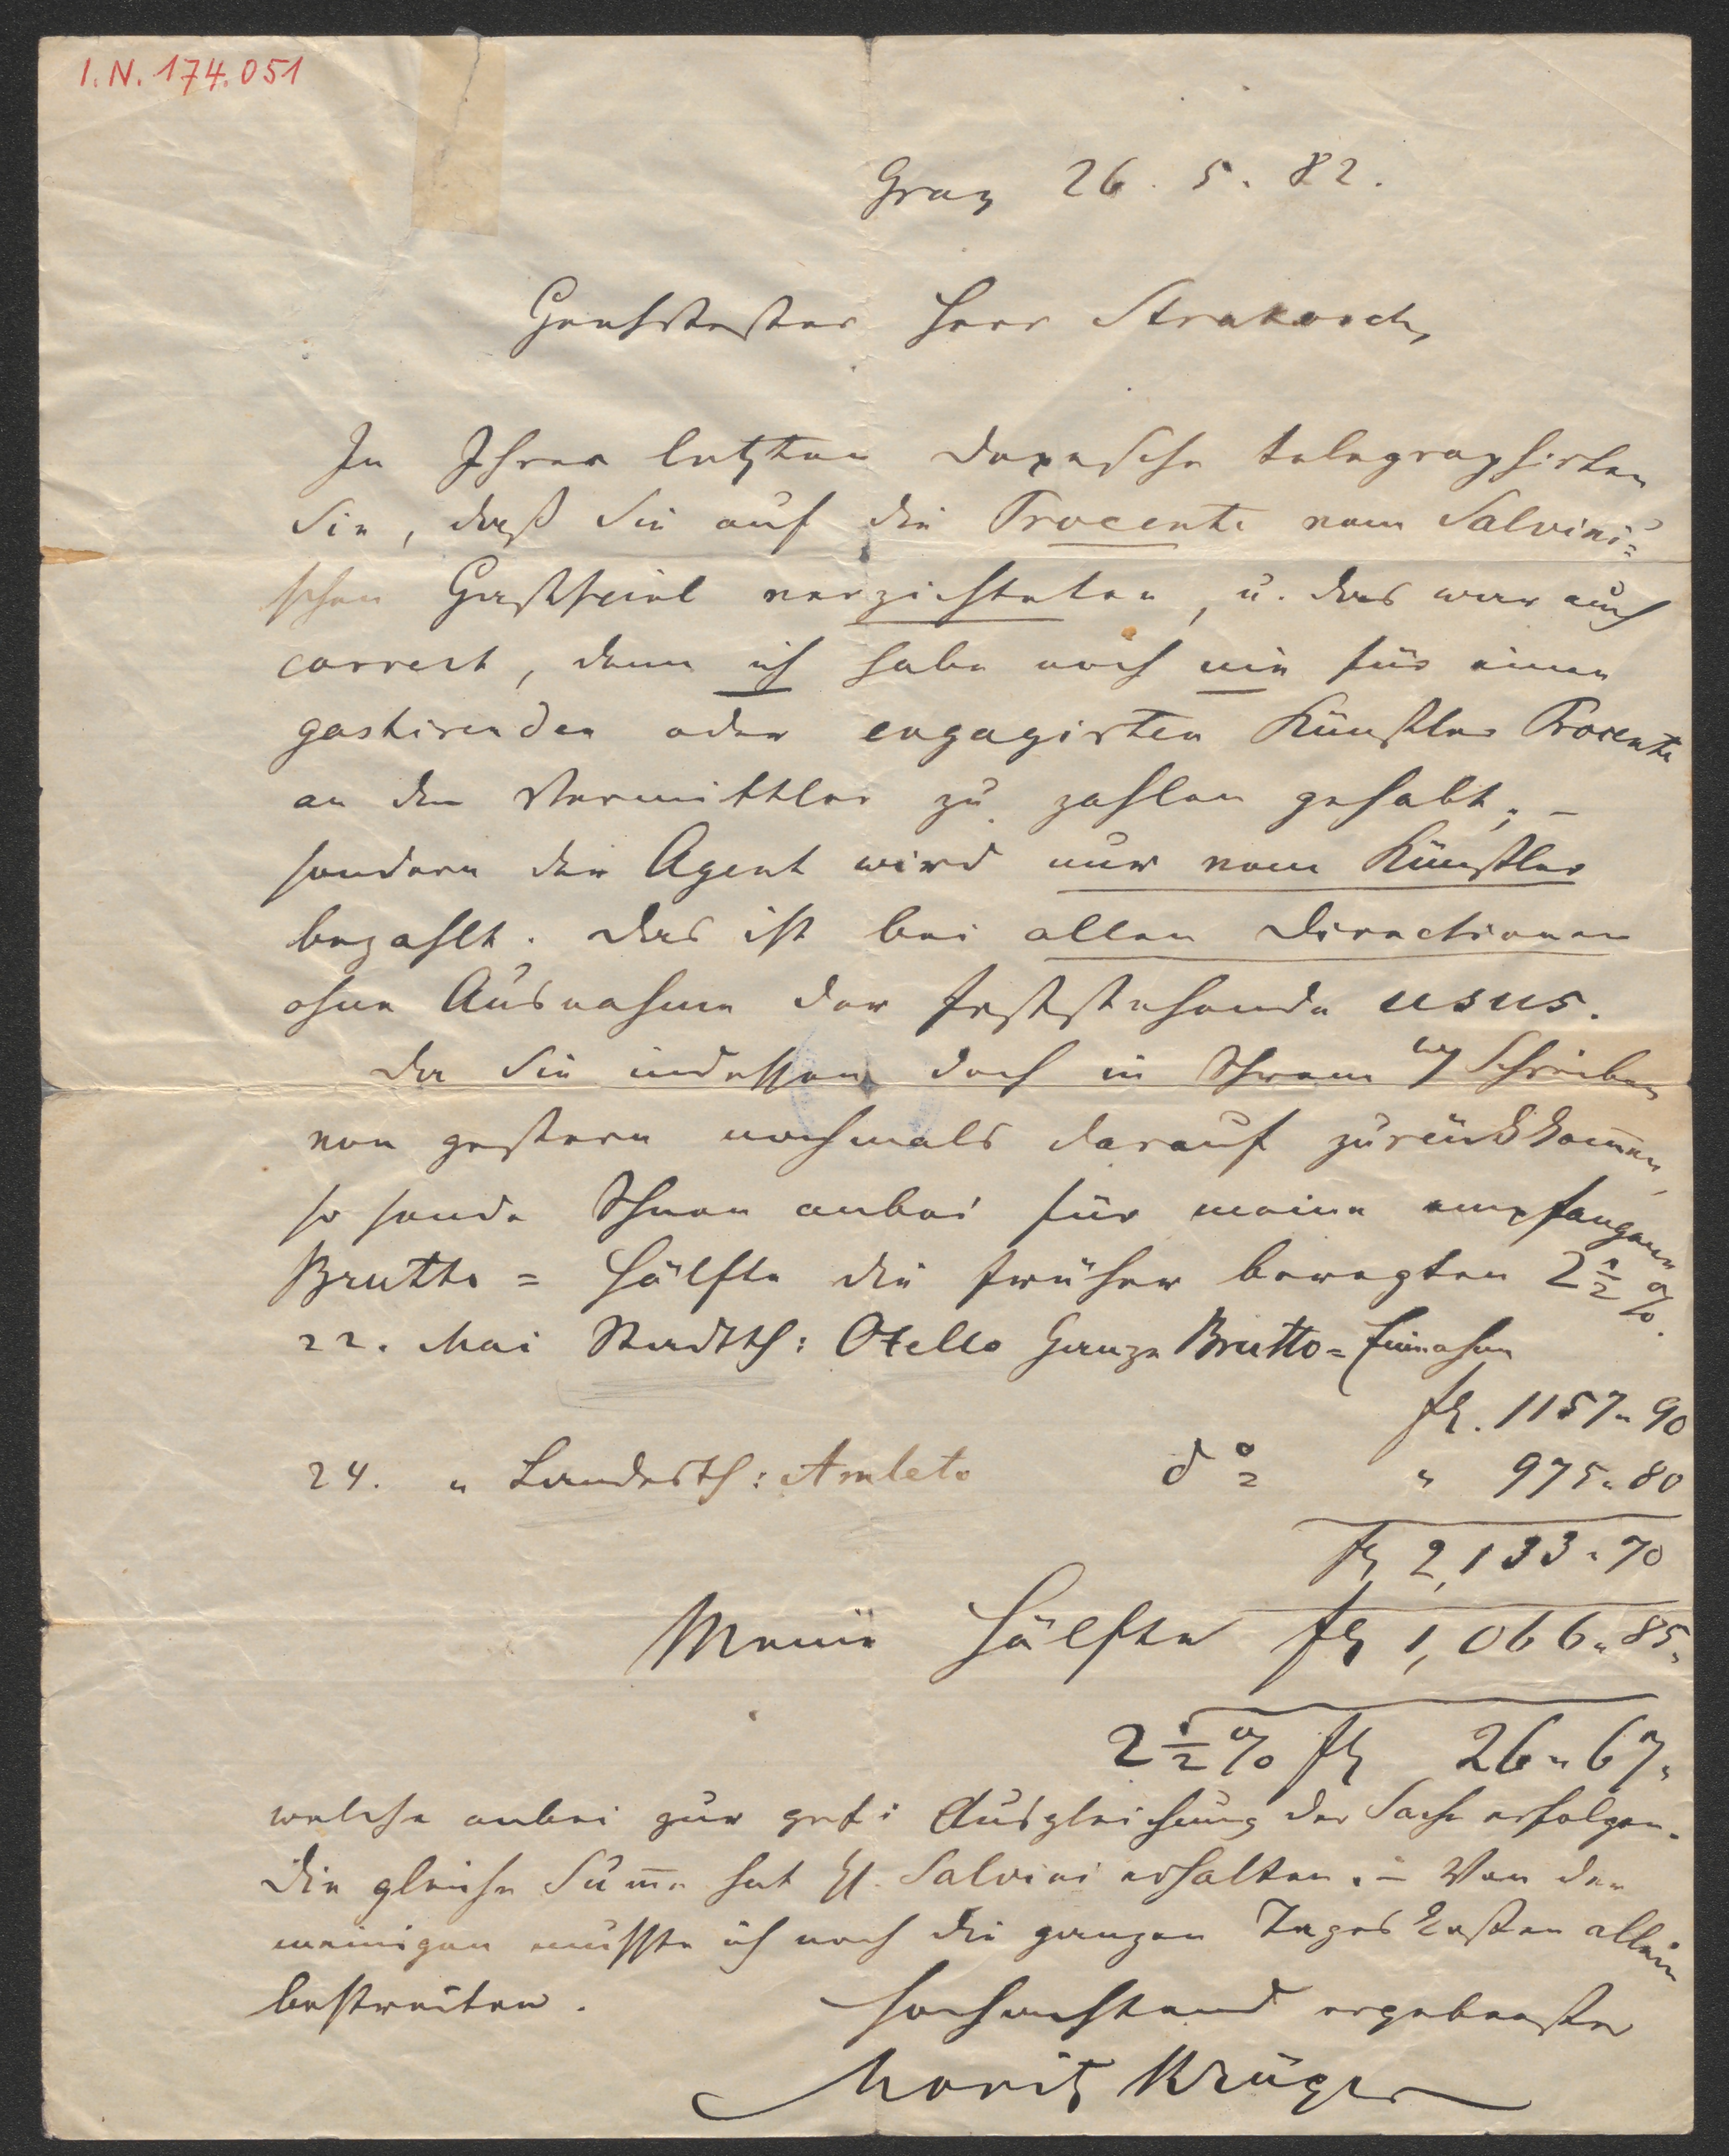 I.N. 174.051
Graz 26. 5. 82.
Geehrtester Herr Strakosch,
In Ihrer letzten Depesche telegraphirten
Sie, daß Sie auf die Procente vom Salvini'=
schen Gastspiel verzichteten, u. das war auch
correct, denn ich habe noch nie für einen
gastirenden oder engagirten Künstler Procente
an den Vermittler zu zahlen gehabt; –
sondern der Agent wird nur vom Künstler
bezahlt. Das ist bei allen Directionen
ohne Ausnahme der feststehende usus.
Da Sie indessen doch in Ihrem Schreiben
von gestern nochmals darauf zurückkom̅en,
so sende Ihnen anbei für meine empfangene
Brutto = Hälfte die früher bewegten 2½ %.
22. Mai Stadtth: Otello Ganze Brutto = Einnahme
fl. 1157 " 90
24. " Landesth: Amleto do " 975 " 80
fl 2,133 " 70
Meine Hälfte fl 1,066 " 85 "
2½ % fl 26 " 67 "
welche anbei zur gef: Ausgleichung der Sache erfolgen.
Die gleiche Sum̅e hat H. Salvini erhalten. – Von der
meinigen mußte ich noch die ganzen Tageskosten allein
bestreiten.
Hochachtend ergebenster
Moritz Krüger